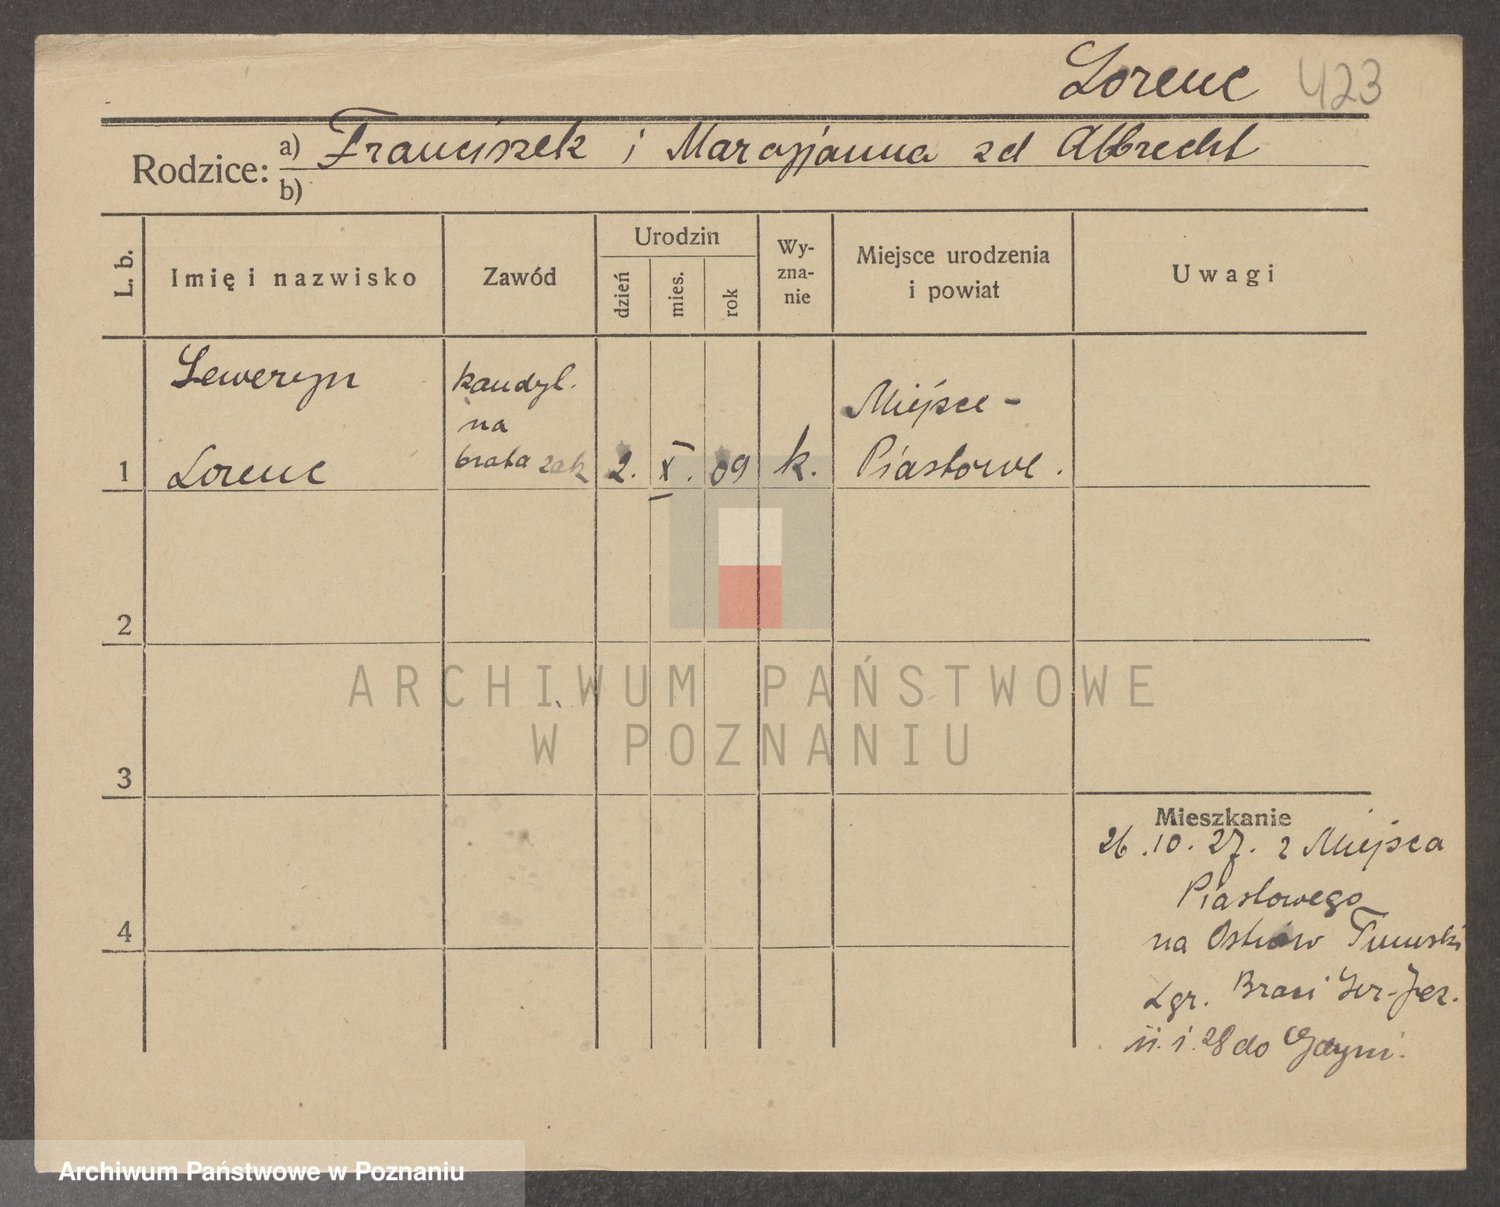 Lorenc 423
Rodzice: a) Franciszek i Maryjanna zd Albrecht
b)
L. b. Imię i nazwisko Zawód Urodzin dzień mies. rok Wyznanie Miejsce urodzenia i powiat Uwagi
Seweryn kandyl. Miejsce -
na
1 Lorenc brata zak 2. X. 09 k. Piastowe.
2
ARCHIWUM PAŃSTWOWE
W POZNANIU
3
Mieszkanie
26.10.27. z Miejsca
Piastowego
4
na Ostrów Tumski
Braci Ser-Jez.
11.1.28 do Gdyni.
Archiwum Państwowe w Poznaniu